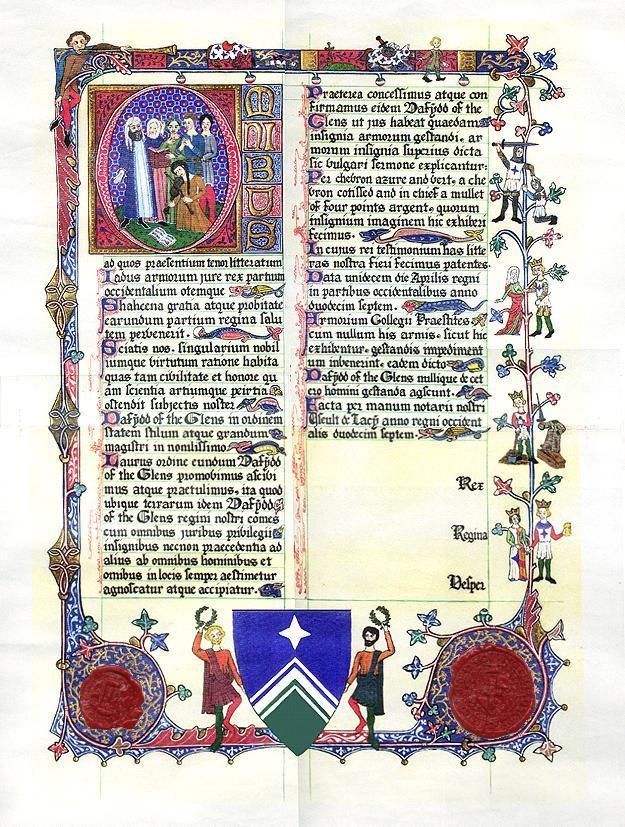 OMNIBUS
ad quos praesentium tenor litteratum
Ladus armorum jure rex partium
occidentalium otemque
Shahcena gratia atque probitate
earundum partium regina salu
tem pervenerit.
Sciatis nos singularium nobil
iumque virtutum ratione habita
quas tam civilitate et honore qu
am scientia artiumque peirtia
ostendit subjectis noster
Dafydd of the Glens in ordinem
statem stilum atque grandum
magistri in nomlissimo
Laurus ordine eundum Dafydd
of the Glens promobimus ascibi
mus atque practulimus, ita quod
ubique terrarum idem Dafydd
of the Glens regini nostri comes
cum omnibus juribus pribilegiis
insignibus necnon praecedentia ad
alius ab omnibus hominibus et
omibus in locis semper aestimetur
agnoscatur atque accipiatur.
Praeterea concessimus atque con
firmamus eidem Dafydd of the
Glens ut jus habeat quaedam
insignia armorum gestandi, ar
morum insignia superius dicta
sic bulgari sermone explicantur:
Per chebron azure and bert, a che
bron cotised and in chief a mullet
of four points argent, quorum
insignium imaginem hic exhiberi
fecimus.
In cuius rei testimonium has litte
ras nostra fieri fecimus patentes.
Data unidecem die Aprilis regni
in partibus occidentalibus anno
duodecim septem.
Armorium Collegii Praestites
cum nullum his armis, sicut hic
exhibentur, gestandis impediment
um inbenerint, eadem dicto
Dafydd of the Glens nullique de cet
ero homini gestanda agscunt.
Facta per manum notarii nostri
Yscult de Lacy anno regni occident
alis duodecim septem.
Rex
Regina
Vesper